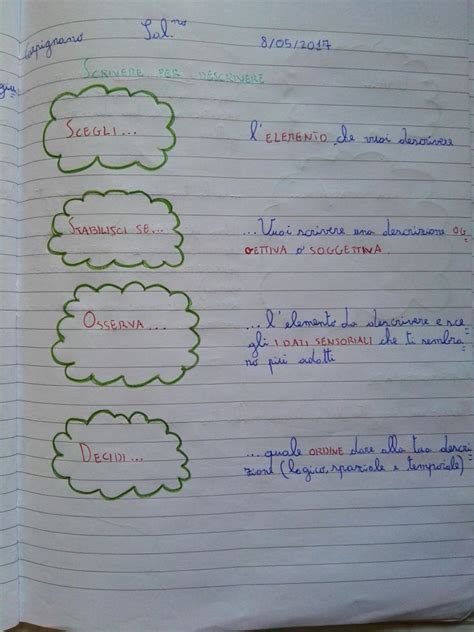 Carpignano Sal.no 8/05/2017
SCRIVERE PER DESCRIVERE
SCEGLI... l'ELEMENTO che vuoi descrivere
STABILISCI SE... ...Vuoi scrivere una descrizione OG
GETTIVA O SOGGETTIVA
OSSERVA... ...l'elemento da descrivere e sce
gli I DATI SENSORIALI che ti sembra
no più adatti
DECIDI... ...quale ORDINE dare alla tua descri
zione (logico, spaziale e temporale)